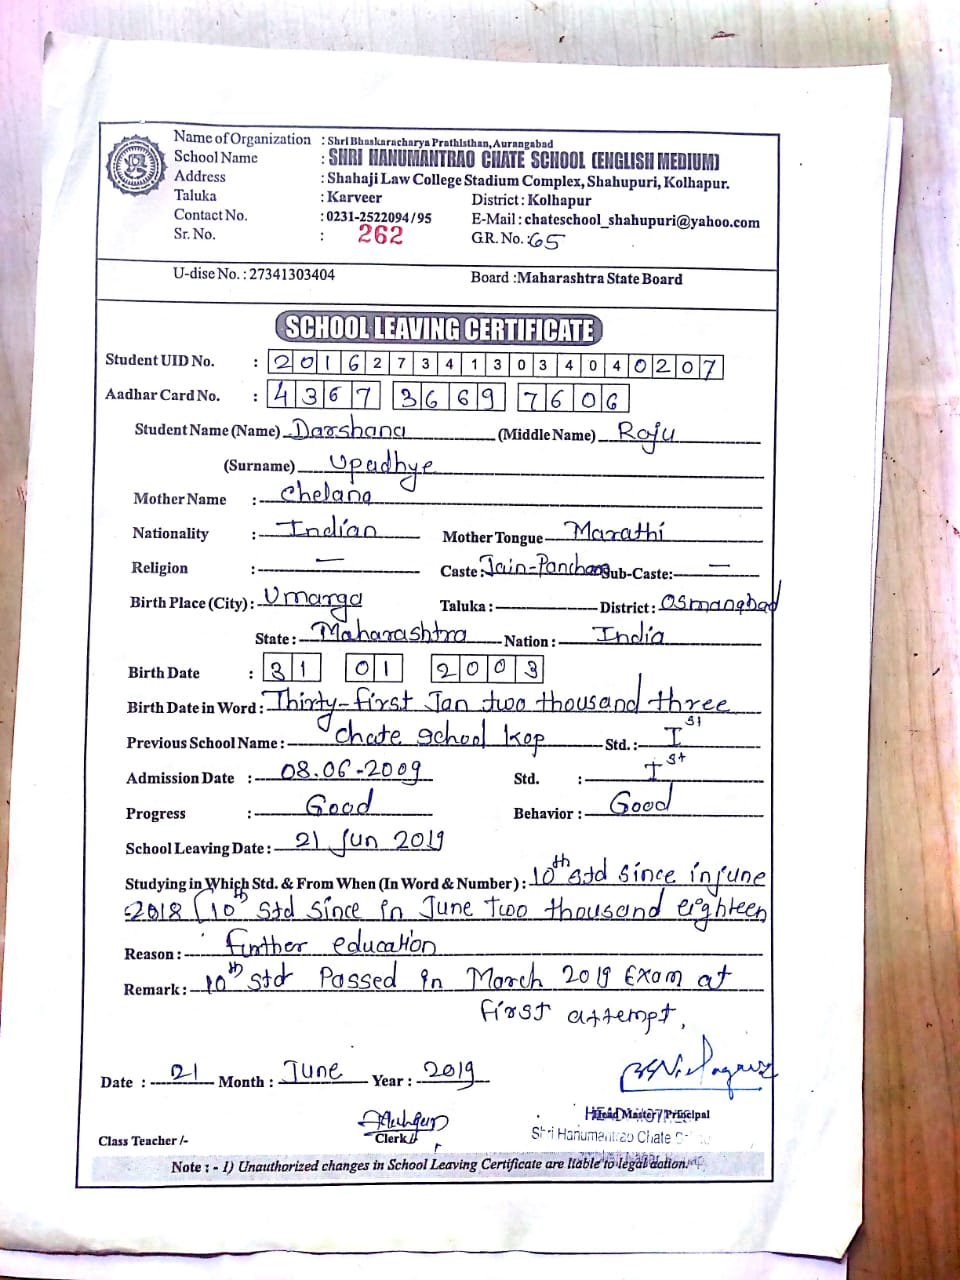 Name of Organization : Shri Bhaskaracharya Prathisthan, Aurangabad
School Name : SHRI HANUMANTRAO CHATE SCHOOL (ENGLISH MEDIUM)
Address : Shahaji Law College Stadium Complex, Shahupuri, Kolhapur.
Taluka : Karveer District : Kolhapur
Contact No. : 0231-2522094/95 E-Mail : chateschool_shahupuri@yahoo.com
Sr. No. : 262 G.R. No. : 65
U-dise No. : 27341303404 Board : Maharashtra State Board
SCHOOL LEAVING CERTIFICATE
Student UID No. : 2016273413034040207
Aadhar Card No. : 4367 3669 7606
Student Name (Name) Darshana (Middle Name) Raju
(Surname) Upadhye
Mother Name : Chetana
Nationality : Indian Mother Tongue Marathi
Religion : — Caste : Jain-Pancham Sub-Caste: —
Birth Place (City) : Umarga Taluka : District : Osmanabad
State : Maharashtra Nation : India
Birth Date : 31 01 2003
Birth Date in Word : Thirty-first Jan two thousand three
Previous School Name : Chate School Kop Std. : Ist
Admission Date : 08.06-2009 Std. : Ist
Progress : Good Behavior : Good
School Leaving Date : 21 Jun 2019
Studying in Which Std. & From When (In Word & Number) : 10th std since in june
2018 (10th Std since in June two thousand eighteen
Reason : further education
Remark : 10th Std Passed in March 2019 Exam at
first attempt.
Date : 21 Month : June Year : 2019
Head Master / Principal
Shri Hanumantrao Chate
Class Teacher /- Clerk
Note : - 1) Unauthorized changes in School Leaving Certificate are liable to legal action.